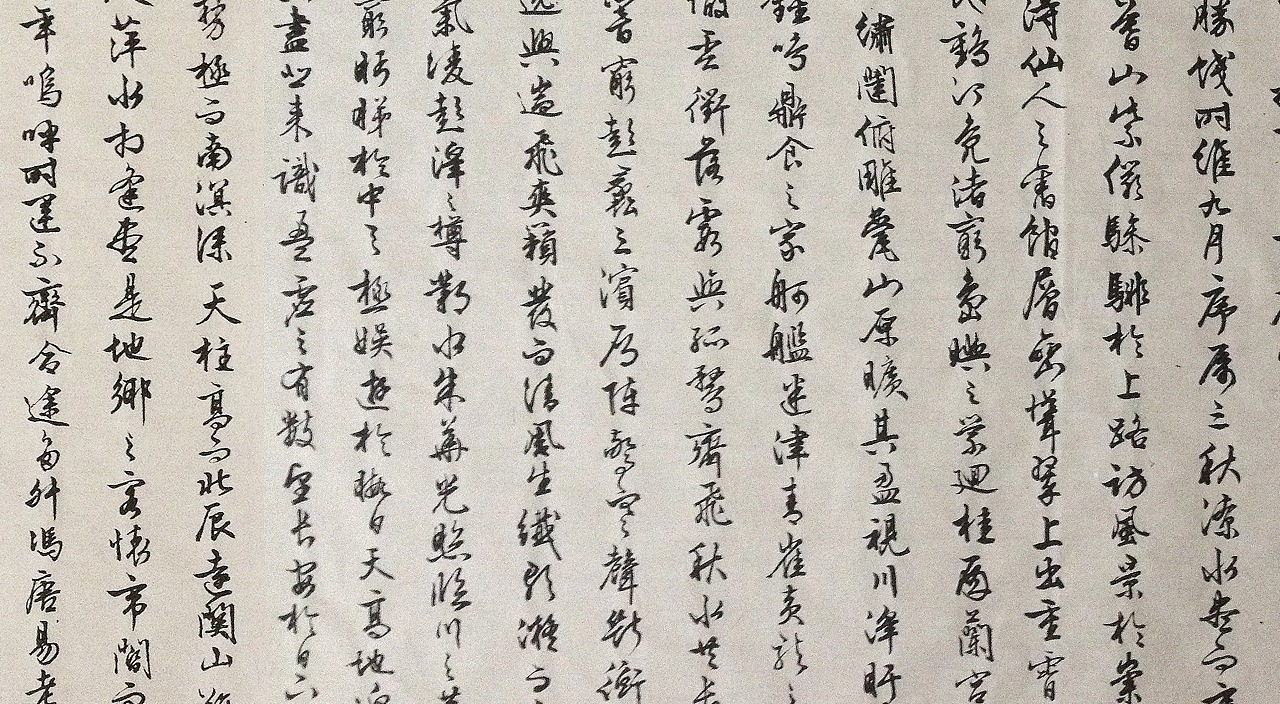 勝餞时維九月序属三秋潦水盡而
山紫儼驂騑於上路訪風景於崇
得仙人之舊館層巒聳翠上出重霄
鶴汀凫渚窮島嶼之縈迴桂殿蘭宮
繡闥俯雕甍山原曠其盈視川澤盱
鐘鳴鼎食之家舸艦迷津青雀黄龍之
雲衢落霞與孤鶩齊飛秋水共長
響窮彭蠡之濱雁陣驚寒聲斷衡
逸興遄飛爽籟發而清風生纖歌凝而
氣凌彭澤之樽鄴水朱華光照臨川之
窮睇眄於中天極娛遊於暇日天高地迥
盡悲来識盈虚之有數望长安於日下
势極而南溟深天柱高而北辰遠關山難
萍水相逢盡是地鄉之客懷帝閽而
年嗚呼时運不齊命途多舛馮唐易老